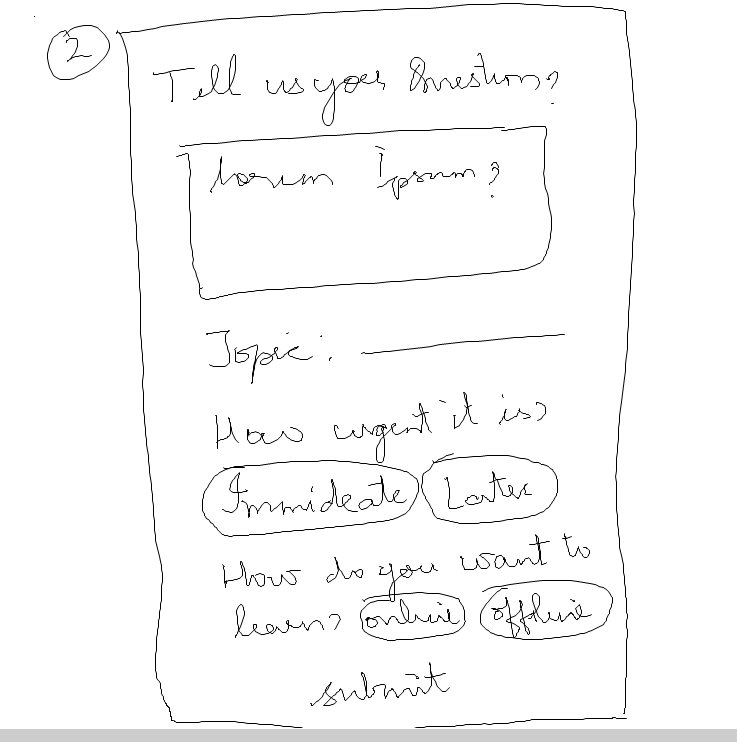 2
Tell us your Question?
lorum Ipsum?
Topic:
How urgent it is?
Immideate Later
How do you want to
learn? online offline
submit